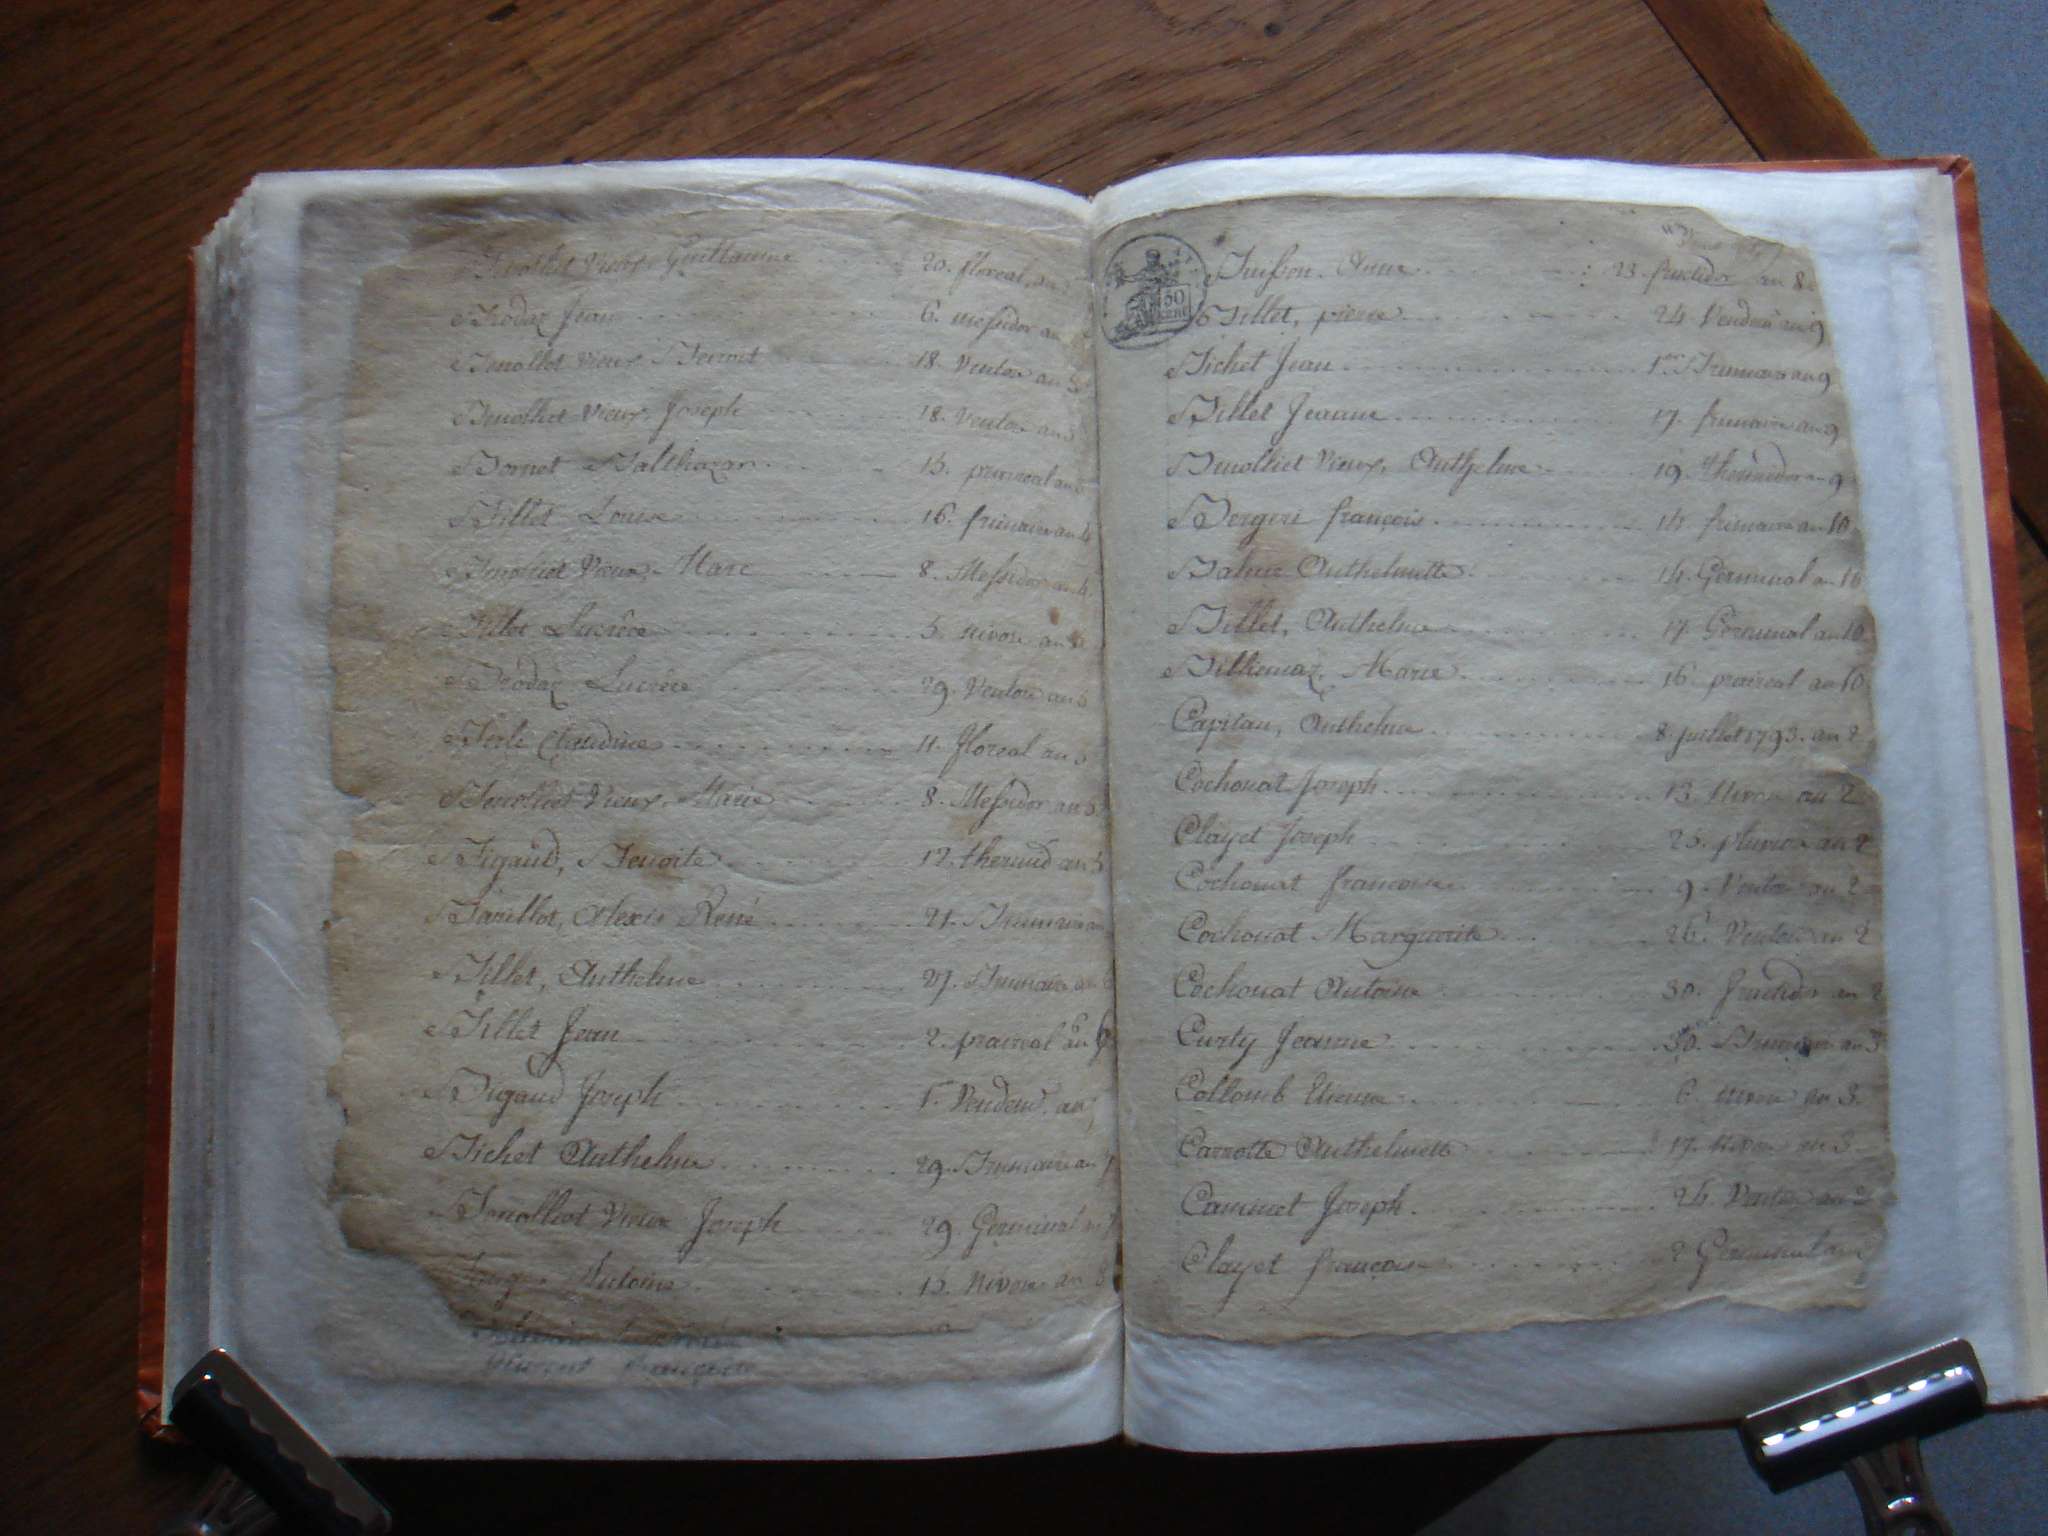 Benolliet Vieux, Guillaume 20. floreal, an
Brodaz Jean 6. messidor an
Benolliet vieux Benoit 18. Ventose an 3
Benolliet vieux, Joseph 18. Ventose an 3
Bornet Balthazar 15. prairial an
Billet Louise 16. frimaire an 4
Benolliet Vieux, Marc 8. Messidor an 4.
Billet Lucrèce 5. nivose an
Brodaz Lucrèce 29. Ventose an 5
Claudine 11. floreal an 5
Benolliet Vieux, Marie 8. Messidor an 5
Bigaud, Benoite 12. thermid an 5
Alexis René 21. Brumaire an
Billet, Anthelme 27. Brumaire an
Billet Jean 2. prairial an 6
Bigaud Joseph 1er Vendem. an 7
Bichet Anthelme 29. Brumaire an 7
Benolliet Vieux Joseph 29. Germinal an 7
Antoine 15. Nivose an 8
Buisson Anne 23. fructidor an 8
Billet, pierre 24 Vendem an 9
Bichet Jean 1er Brumaire an 9
Billet Jeanne 17. frimaire an 9
Benolliet Vieux, Anthelme 19. thermidor an 9
Bergeri françois 15. frimaire an 10
Anthelmette 15. Germinal an 10
Billet, Anthelme 17. Germinal an 10
Billiemaz, Marie 16. prairial an 10
Capitan, Anthelme 8. juillet 1793. an 2
Cochonat Joseph 13. Nivose an 2
Clayet Joseph 25. pluviose an 2
Cochonat françoise 9. Ventose an 2
Cochonat Marguerite 26. Ventose an 2
Cochonat Antoine 30. fructidor an 2
Curty Jeanne 30. Brumaire an 3
Collomb Etienne 6. nivose an 3.
Carrotte Anthelmette 17. Nivose an 3
Caminet Joseph 25. Ventose an 3
Clayet françoise 2 Germinal an